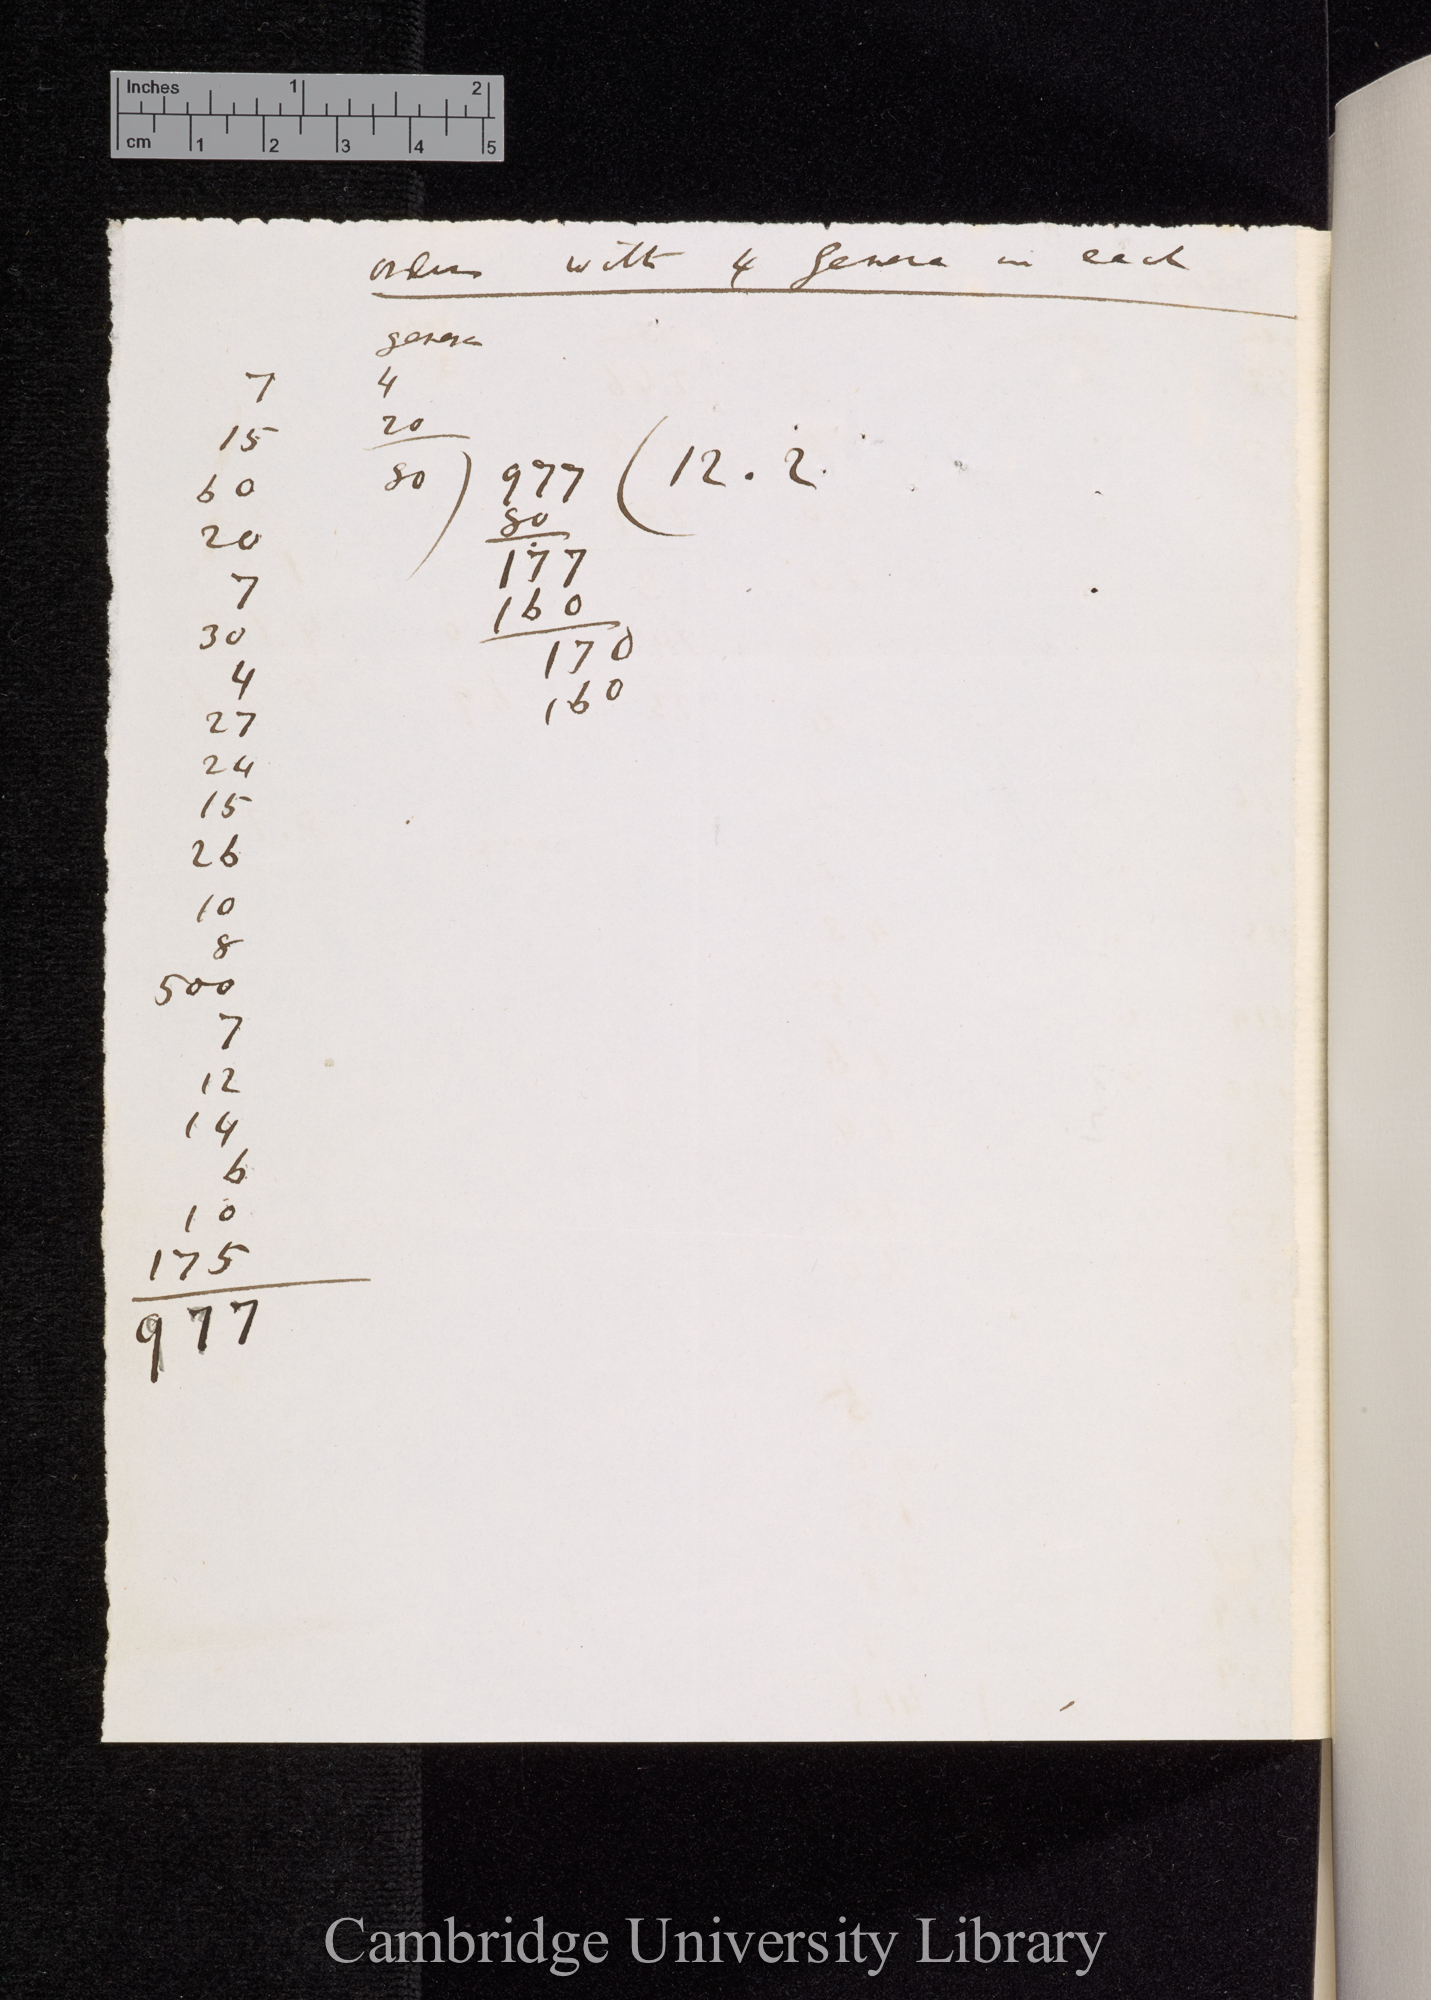 Inches 1 2
cm 1 2 3 4 5
orders with 4 genera in each
genera
7 4
15 20
60 80 ) 977 ( 12 . 2
20 80
7 177
30 160
4 170
27 160
24
15
26
10
8
500
7
12
14
6
10
175
977
Cambridge University Library